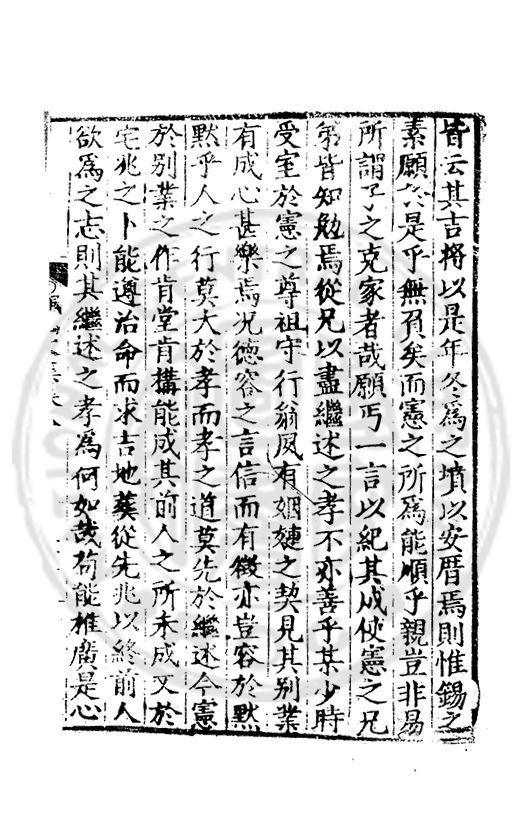 皆云其吉將以是年冬爲之墳以安厝焉則惟錫之
素願於是乎無負矣而憲之所爲能順乎親豈非易
所謂子之克家者哉願丐一言以紀其成使憲之兄
弟皆知勉焉從兄以盡繼述之孝不亦善乎某少時
受室於憲之尊祖守行翁夙有姻婕之契見其别業
有成心甚樂焉况德容之言信而有徵亦豈容於黙
黙乎人之行莫大於孝而孝之道莫先於繼述今憲
於别業之作肯堂肯搆能成其前人之所未成又於
宅兆之卜能遵治命而求吉地葬從先兆以終前人
欲爲之志則其繼述之孝爲何如哉苟能推廣是心